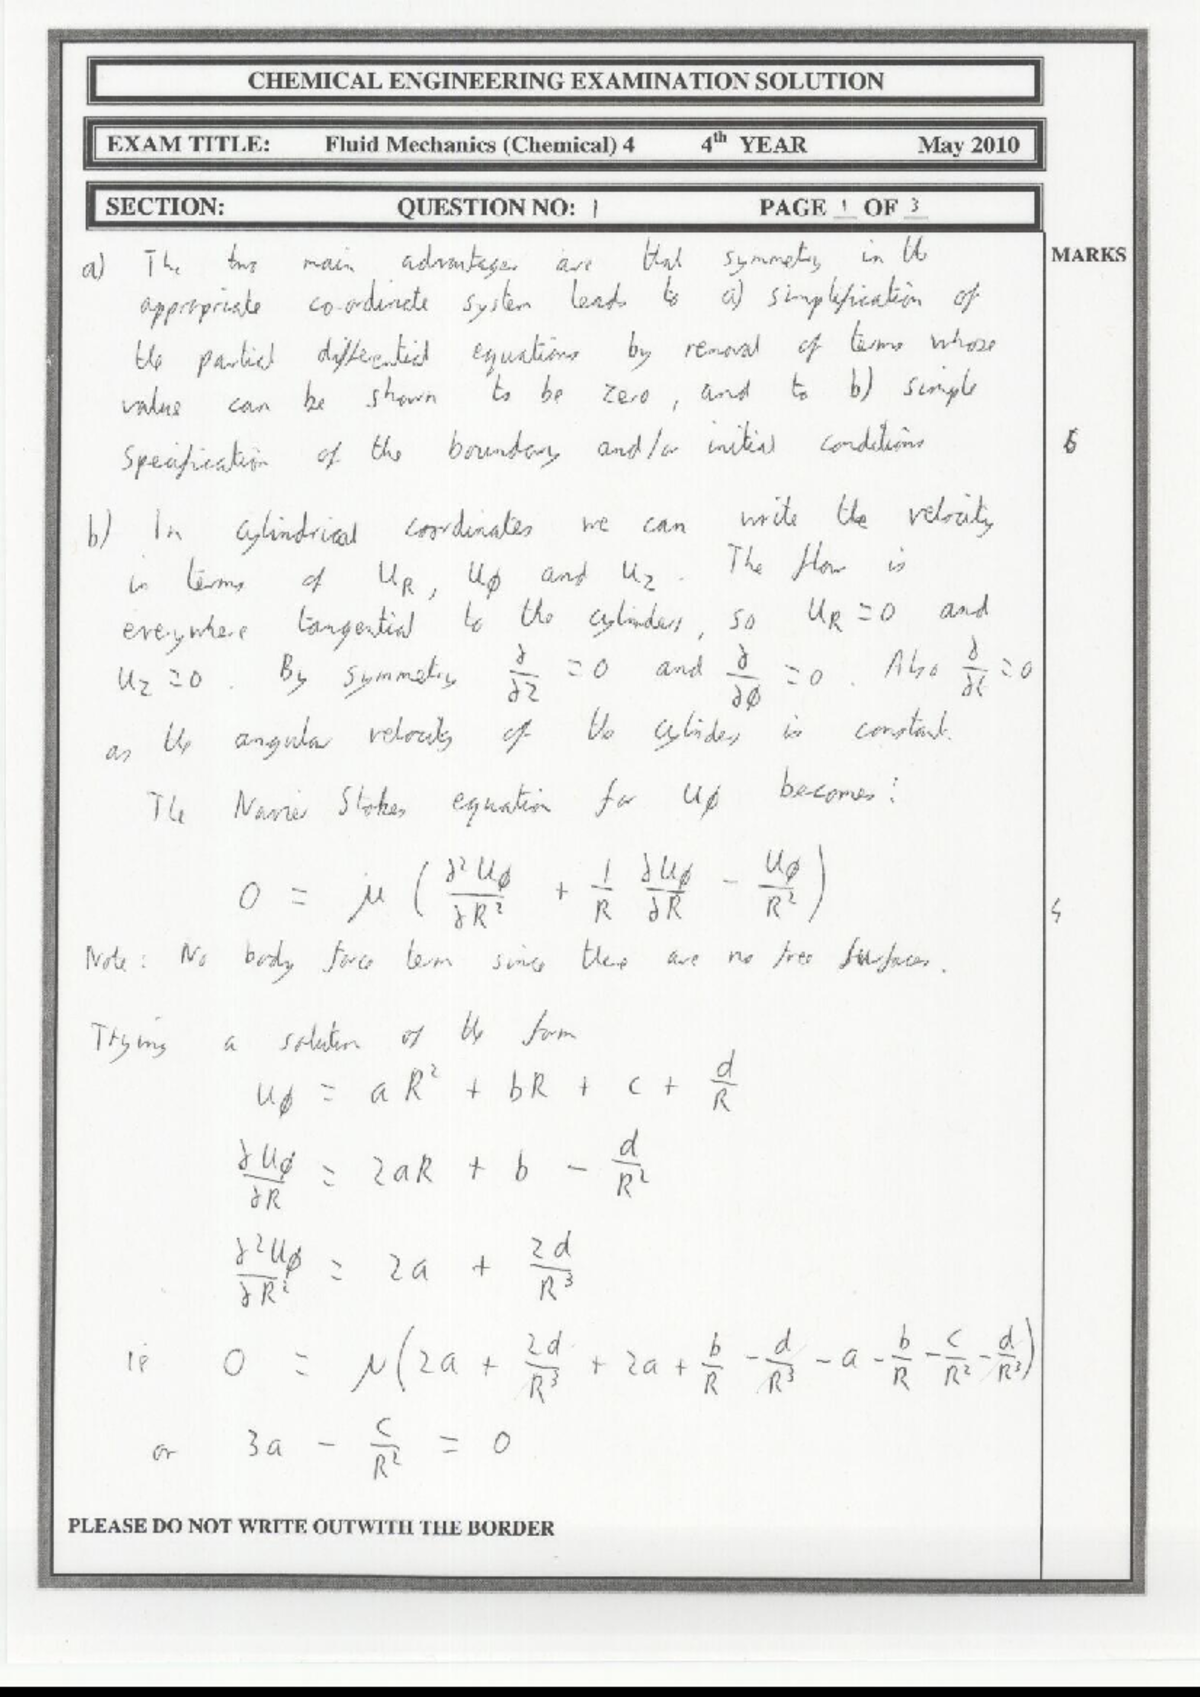 CHEMICAL ENGINEERING EXAMINATION SOLUTION
EXAM TITLE: Fluid Mechanics (Chemical) 4 4th YEAR May 2010
SECTION: QUESTION NO: 1 PAGE 1 OF 3
MARKS
a) The two main advantages are that symmetry in the
appropriate co-ordinate system leads to a) simplification of
the partial differential equations by removal of terms whose
value can be shown to be zero, and to b) simple
specification of the boundary and/or initial conditions
b) In cylindrical coordinates we can write the velocity
in terms of uR, uø and uz. The flow is
everywhere tangential to the cylinders, so uR = 0 and
uz = 0. By symmetry ∂/∂z = 0 and ∂/∂ø = 0. Also ∂/∂t = 0
as the angular velocity of the cylinders is constant.
The Navier Stokes equation for uø becomes:
0 = μ ( ∂²uø/∂R² + 1/R ∂uø/∂R - uø/R² )
Note: No body force term since there are no free surfaces.
Trying a solution of the form
uø = aR² + bR + c + d/R
∂uø/∂R = 2aR + b - d/R²
∂²uø/∂R² = 2a + 2d/R³
ie 0 = μ(2a + 2d/R³ + 2a + b/R - d/R³ - a - b/R - c/R² - d/R³)
or 3a - c/R² = 0
PLEASE DO NOT WRITE OUTWITH THE BORDER